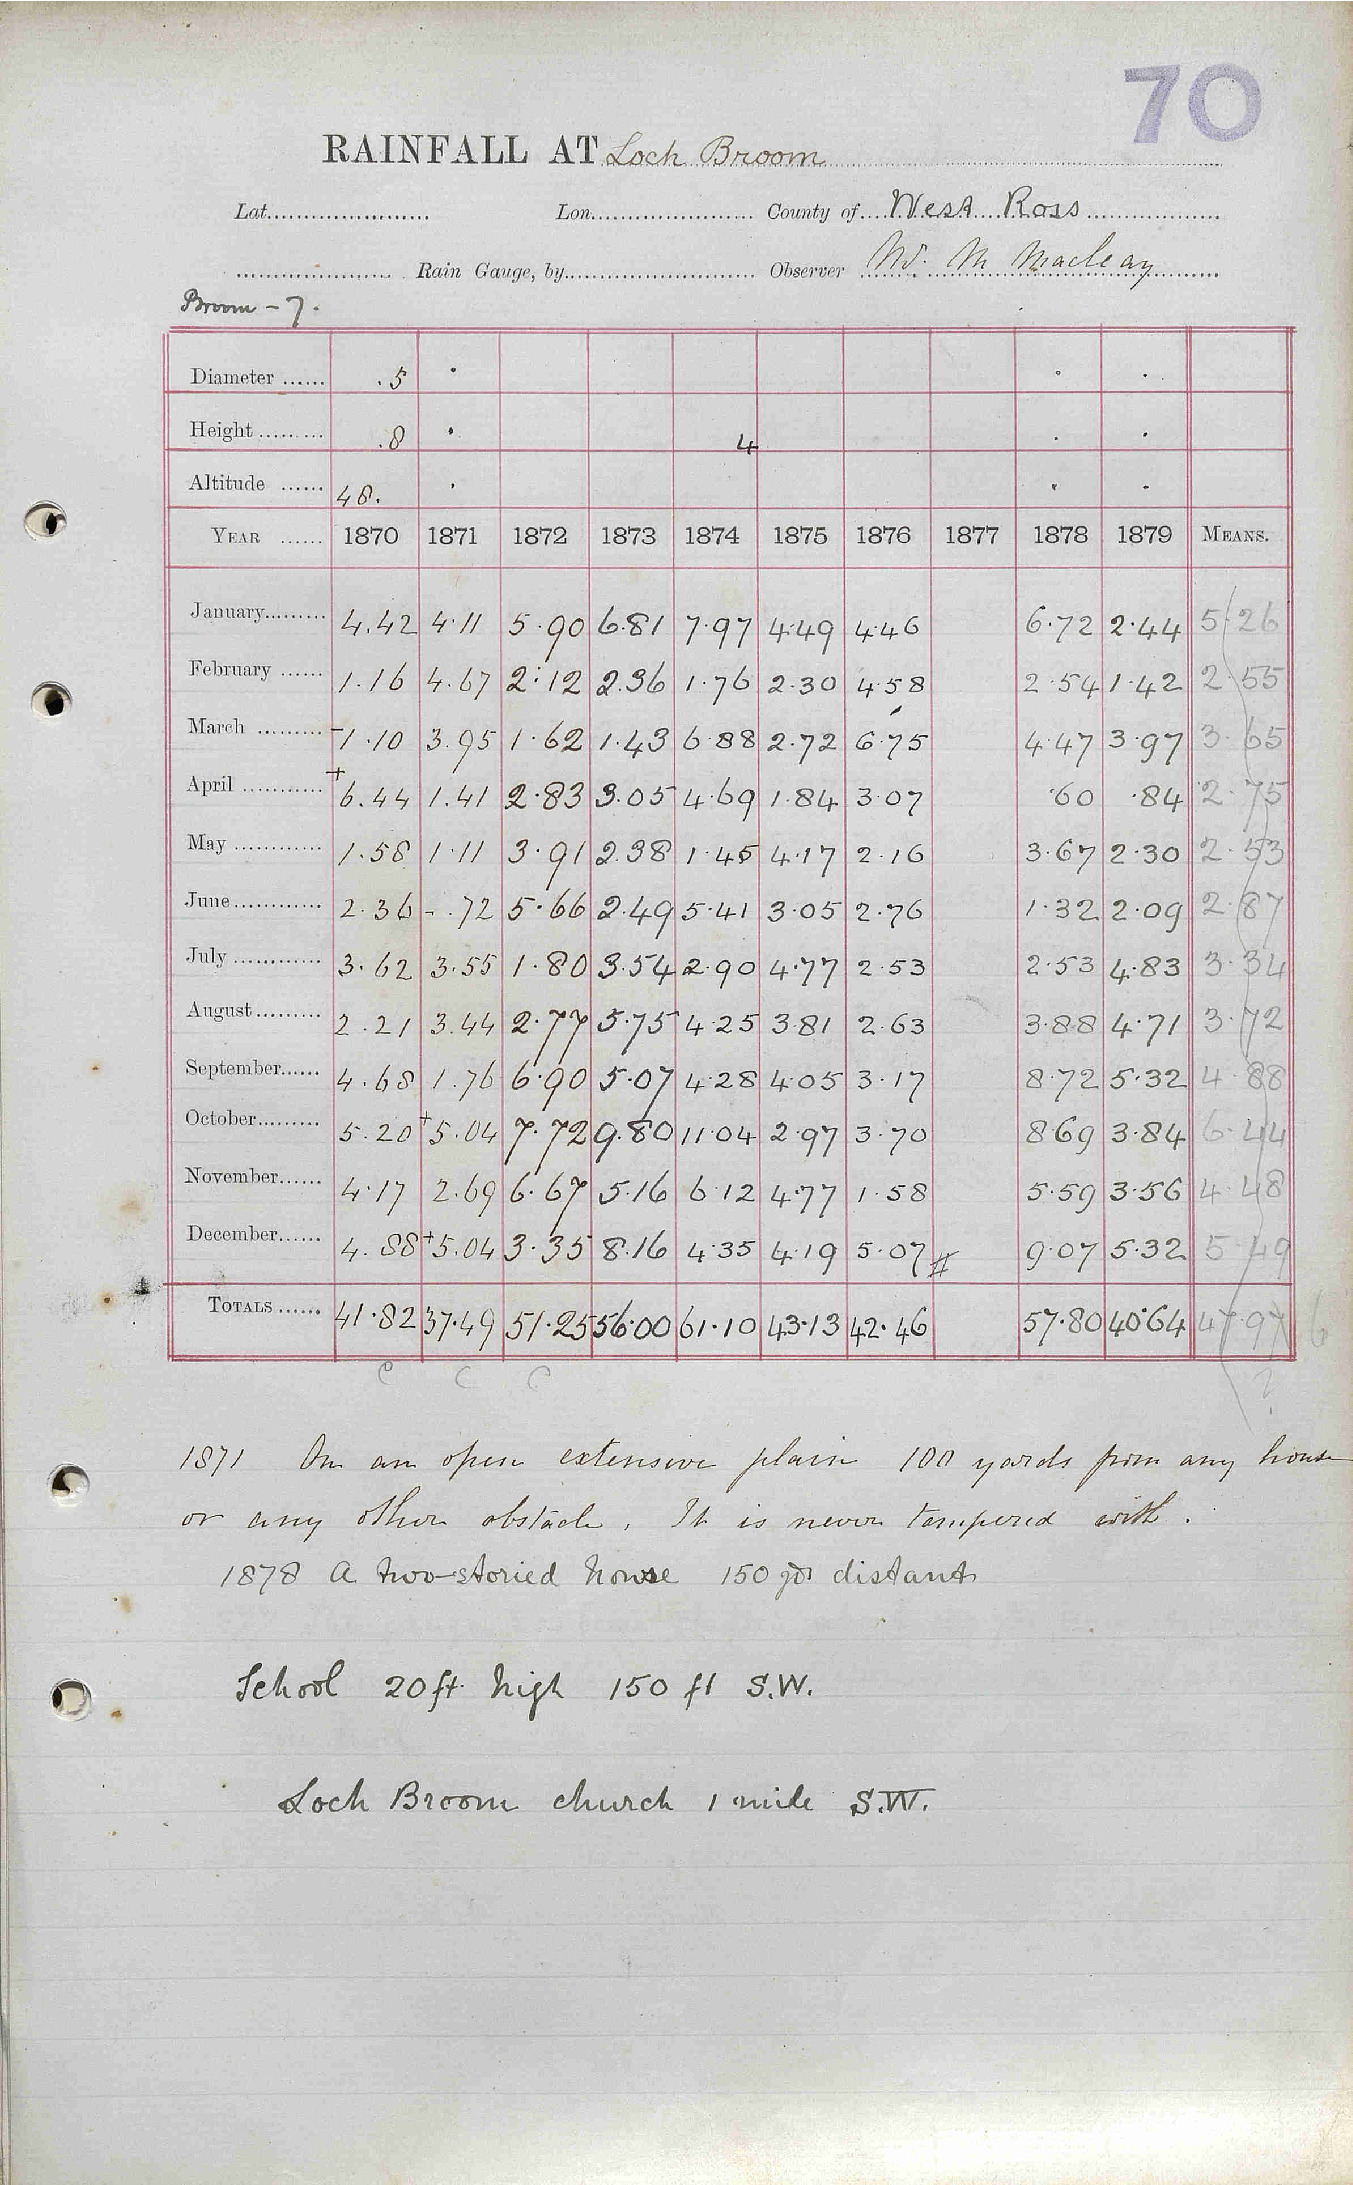 70
RAINFALL AT Loch Broom
Lat. Lon. County of West Ross
Rain Gauge, by Observer M. Macleay
Broom - 7.
Diameter .5
Height .8 4
Altitude 48.
YEAR 1870 1871 1872 1873 1874 1875 1876 1877 1878 1879 MEANS.
January 4.42 4.11 5.90 6.81 7.97 4.49 4.46 6.72 2.44 5.26
February 1.16 4.67 2.12 2.36 1.76 2.30 4.58 2.54 1.42 2.55
March -1.10 3.95 1.62 1.43 6.88 2.72 6.75 4.47 3.97 3.65
April +6.44 1.41 2.83 3.05 4.69 1.84 3.07 .60 .84 2.75
May 1.58 1.11 3.91 2.38 1.45 4.17 2.16 3.67 2.30 2.53
June 2.36 -.72 5.66 2.49 5.41 3.05 2.76 1.32 2.09 2.87
July 3.62 3.55 1.80 3.54 2.90 4.77 2.53 2.53 4.83 3.34
August 2.21 3.44 2.77 5.75 4.25 3.81 2.63 3.88 4.71 3.72
September 4.68 1.76 6.90 5.07 4.28 4.05 3.17 8.72 5.32 4.88
October 5.20 +5.04 7.72 9.80 11.04 2.97 3.70 8.69 3.84 6.44
November 4.17 2.69 6.67 5.16 6.12 4.77 1.58 5.59 3.56 4.48
December 4.88 +5.04 3.35 8.16 4.35 4.19 5.07 # 9.07 5.32 5.49
TOTALS 41.82 37.49 51.25 56.00 61.10 43.13 42.46 57.80 40.64 47.97 6
C C C ?
1871 On an open extensive plain 100 yards from any house
or any other obstacle. It is never tampered with.
1878 A two-storied house 150 yds distant
School 20 ft. high 150 ft S.W.
Loch Broom church 1 mile S.W.